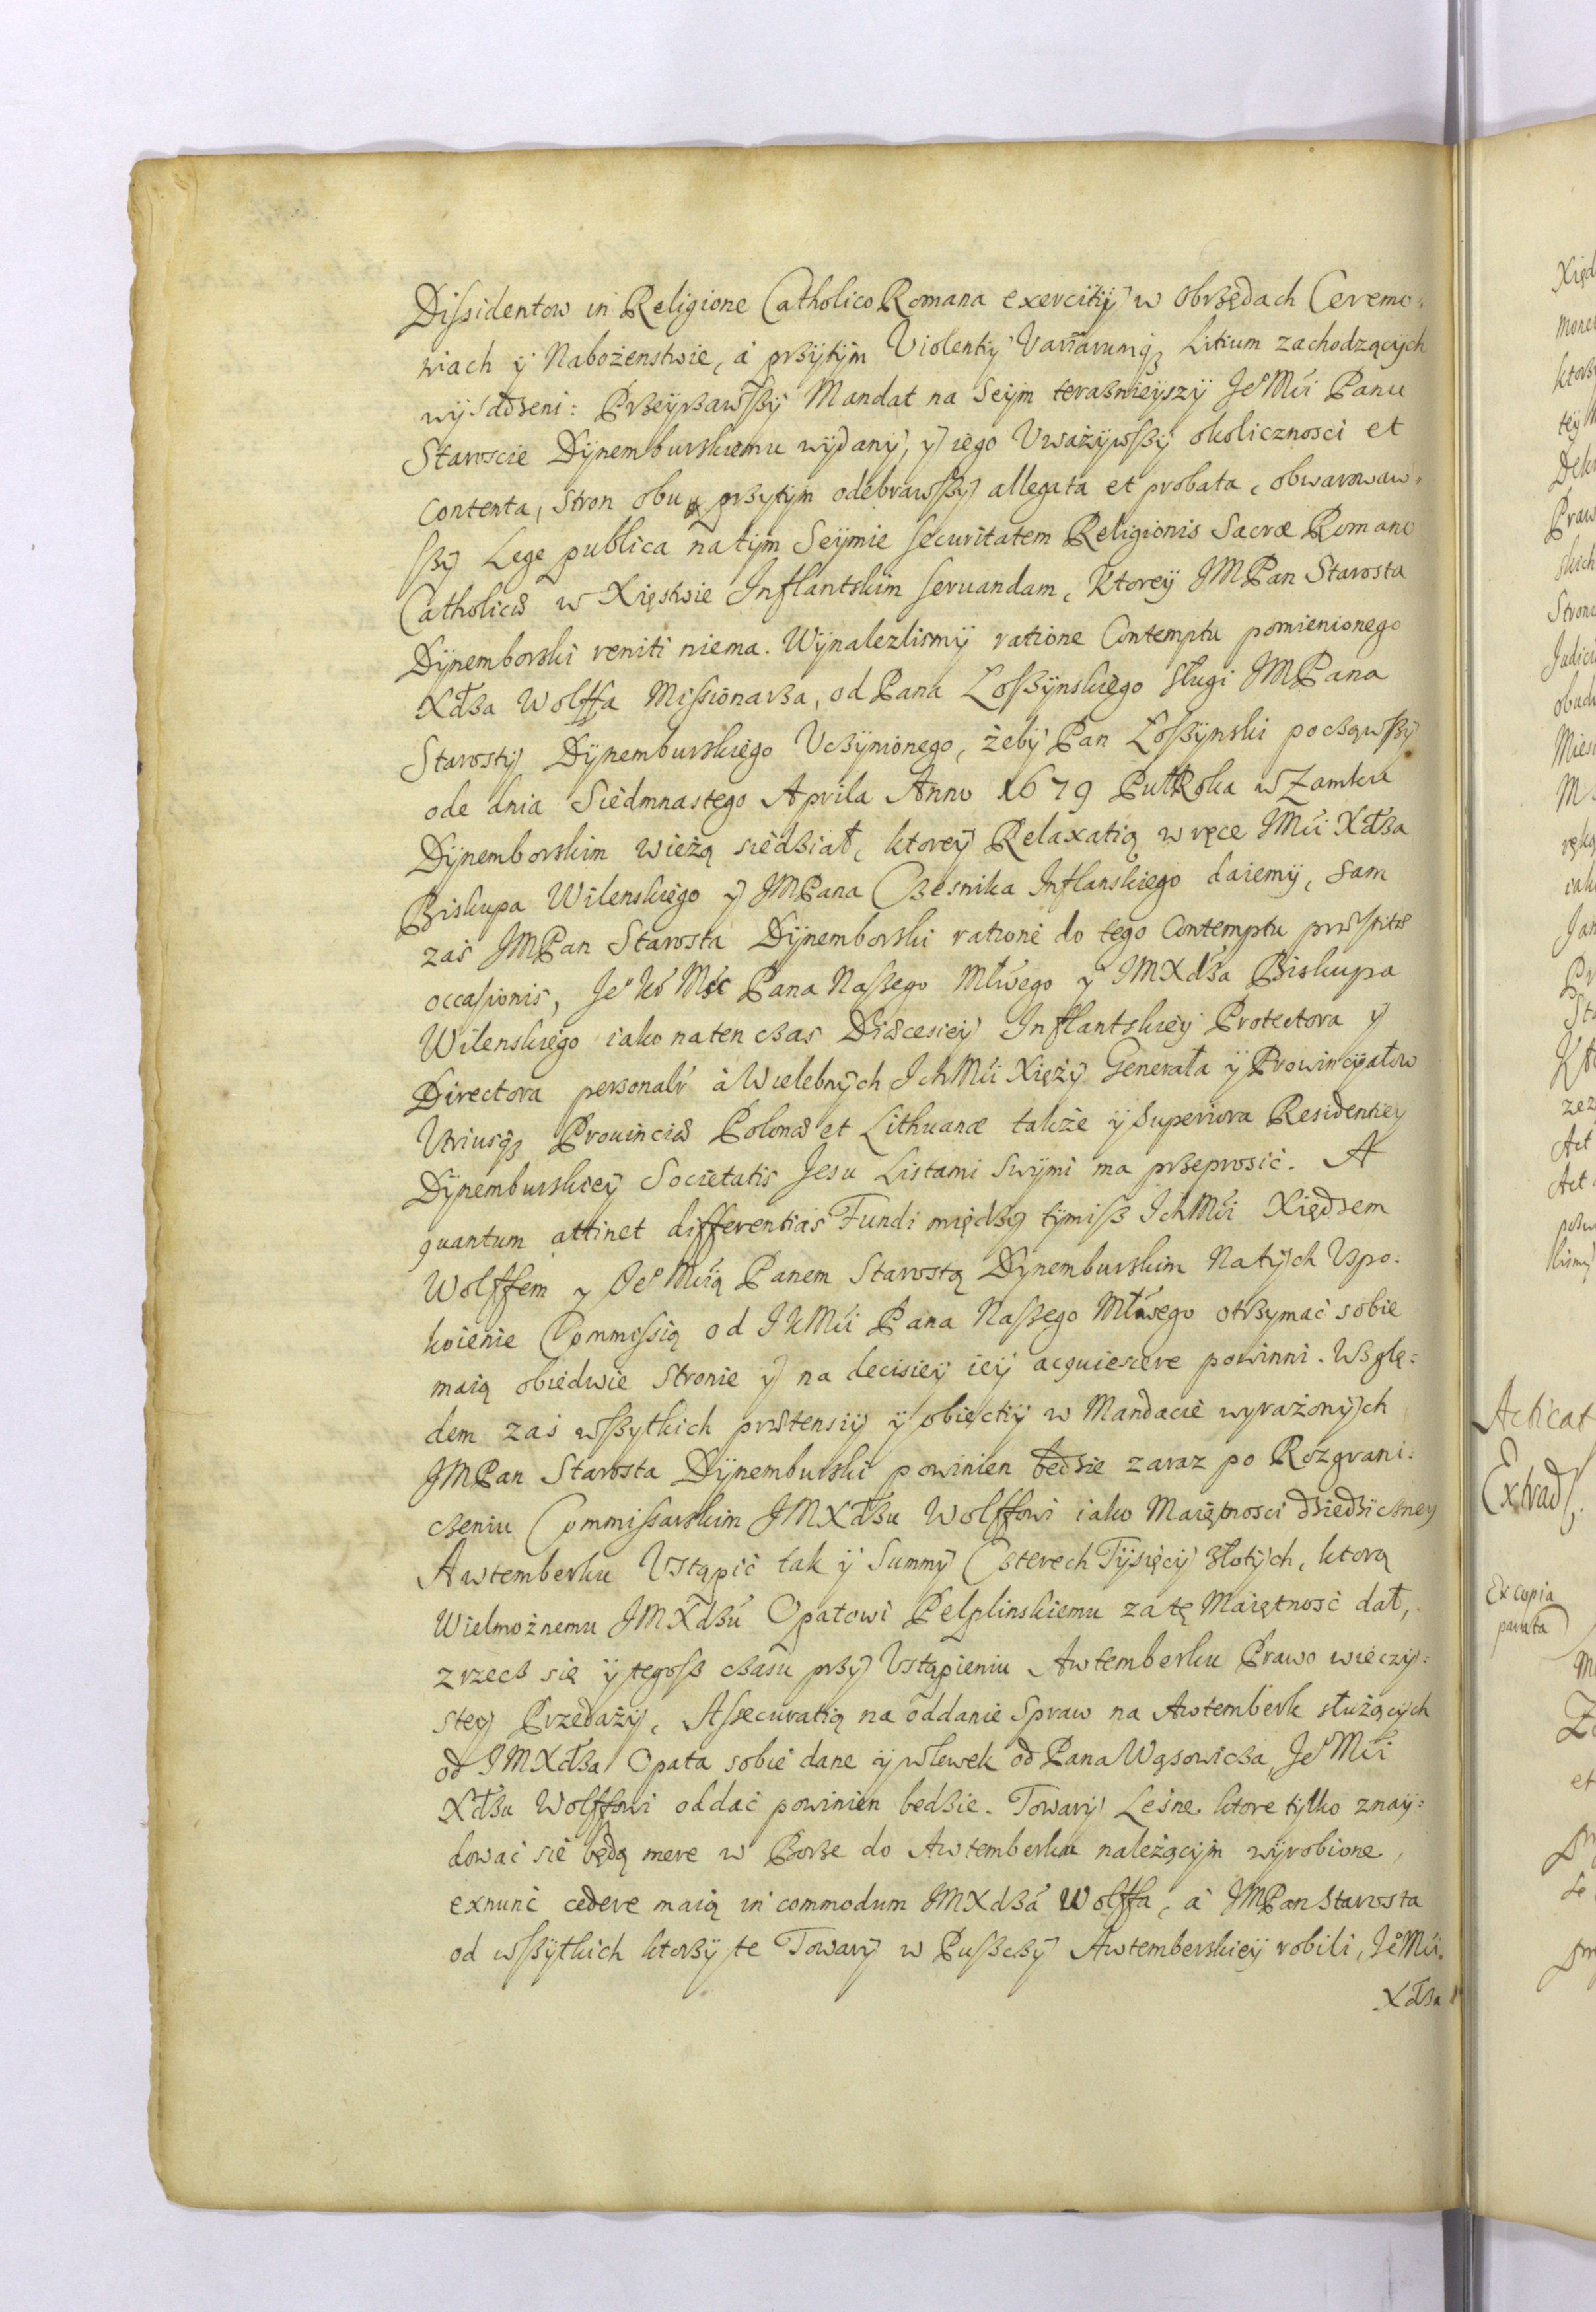 Dissidentow in Religione Catholico Romana exercitij w obrzędach Ceremo:
niach y Nabożenstwie, á przytÿm Violentiÿ Variarumqз Litium zachodzącÿch
wÿsadzeni: Przeÿrzawszÿ Mandat na Seÿm teraznieÿszÿ Je° Mći Panu
Staroscie Dÿnemburskiemu wÿdanÿ, ÿ iego Uważÿwszÿ okolicznosci et
Contenta, stron obu przytÿm odebrawszÿ allegata et probata, obwarowaw:
szÿ Lege publica na tÿm Seÿmie securitatem Religionis Sacræ Romano
Catholicæ w Xięstwie Inflantskim servandam, Ktoreÿ JMPan Starosta
Dÿnemborski reniti niema. Wÿnalezlismÿ ratione Contemptu pomienionego
Xdza Wolffa Missionarza, od Pana Loszÿnskiego sługi JMPana
Starostÿ Dÿnemburskiego Uczÿnionego, żebÿ Pan Loszÿnski począwszÿ
ode dnia Siedmnastego Aprila Anno 1679 Puł Roka w Zamku
Dÿnemborskim wieżą siedział, ktoreÿ Relaxatią w ręce JMći Xdza
Biskupa Wilenskiego ÿ JMPana Czesnika Inflanskiego daiemÿ, sam
zaś JMPan Starosta Dÿnemborski rationé do tego Contemptu præstitæ
occasionis, Je° Kó Mśc Pana Naszego Młwego ÿ JMXdza Biskupa
Wilenskiego iako na ten czas Diæcesieÿ Inflantskieÿ Protectora ÿ
Directora personalr á Wielebnÿch IchMći Xiężÿ Generała ÿ Prowincÿałow
Utriusqз Prouinciæ Polonæ et Lithuanæ także ÿ Superiora Residentieÿ
Dÿnemburskieÿ Societatis Jesu Listami Swÿmi ma przeprosić. A
quantum attinet differentias Fundi międzÿ tÿmisz IchMći Xiędzem
Wolffem y Je° Mćią Panem Starostą Dÿnemburskim Natÿch Uspo:
koienie Commissią od IKMći Pana Naszego Młwego otrzymać sobie
maią obiedwie Stronie ÿ na decisieÿ ieÿ acquiescere powinni. Wzglę:
dem zaś wszytkich prætensiÿ ÿ obiectiÿ w Mandacie wyrażonÿch
JMPan Starosta Dÿnemburski powinien będzie zaraz po Rozgrani:
czeniu Commissarskim JMXdzu Wolffowi iako Maiętnosci dziedzicznej
Awtemberku Ustąpić tak ÿ Summÿ Czterech Tÿsięcÿ złotÿch, ktorą
Wielmożnemu JMXdzu Opatowi Pelplinskiemu za tę Maiętność dał,
zrzecz się ÿ tegosz czasu przÿ Ustąpieniu Awtemberku Prawo wieczÿ:
steÿ Przedażÿ, Assecuratią na oddanie Spraw na Awtemberk służącÿch
od JMXdza Opata sobie dane ÿ wlewek od Pana Wąsowicza, Je° Mći
Xdzu Wolffowi oddać powinien bedzie. Towarÿ Leśne ktore tylko znaÿ:
dować sie będą mere w Borze do Awtemberku należącÿm wÿrobione,
exnunc cedere maią in commodum JMXdza Wolffa, á JMPan Starosta
od wszÿtkich ktorzÿ te Towarÿ w Puszczÿ Awtemberskieÿ robili, Je° Mći
Xdza
Acticat
Extrad
Ex copia
parata